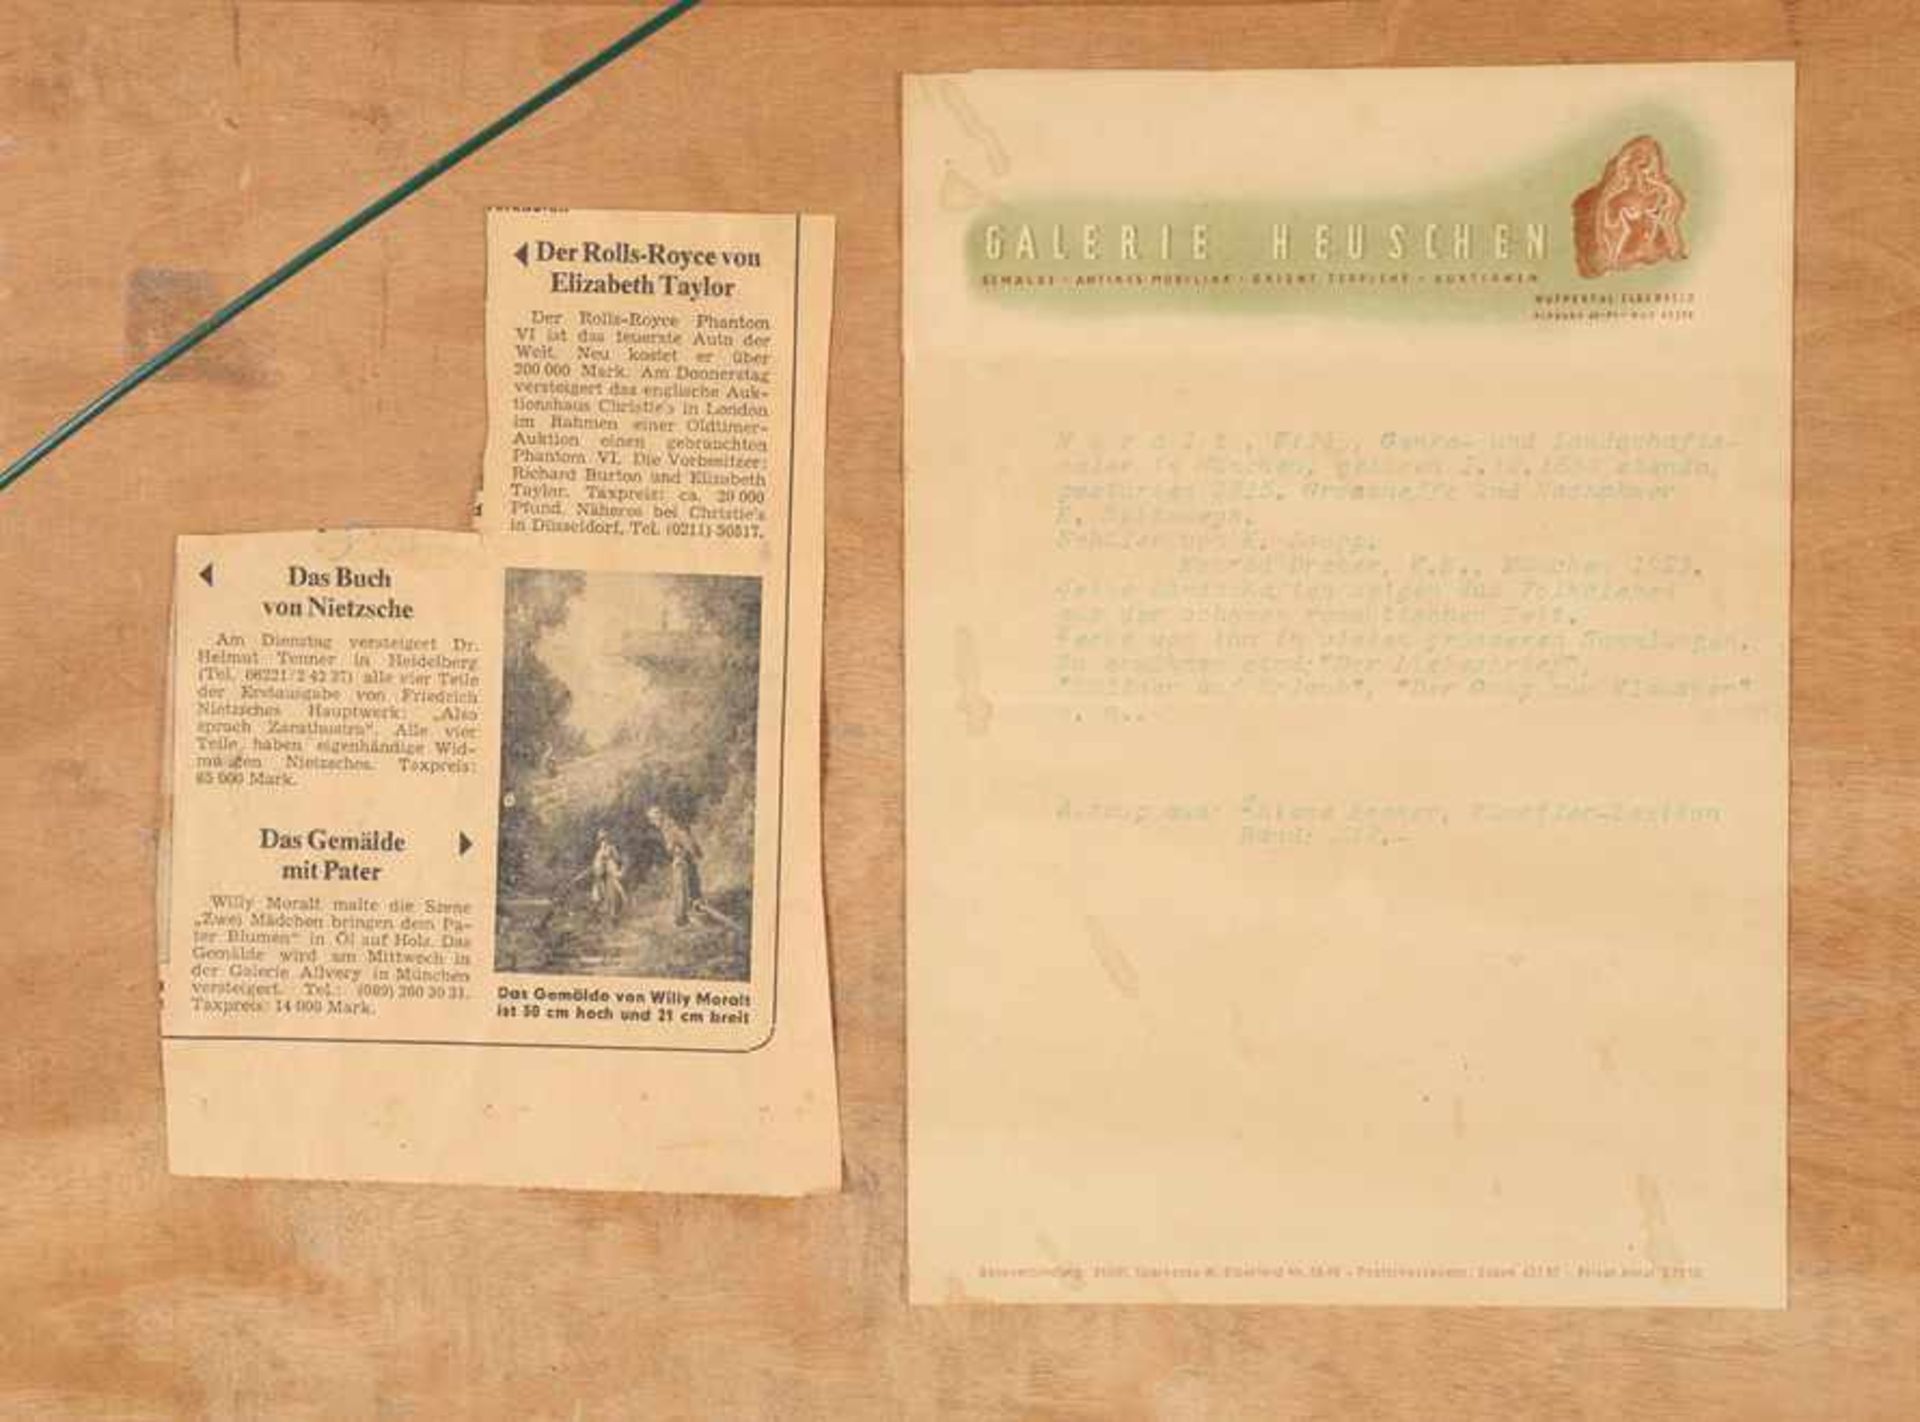 ◀ Der Rolls-Royce von
Elizabeth Taylor
Der Rolls-Royce Phantom
VI ist das teuerste Auto der
Welt. Neu kostet er über
200 000 Mark. Am Donnerstag
versteigert das englische Auk-
tionshaus Christie's in London
im Rahmen einer Oldtimer-
Auktion einen gebrauchten
Phantom VI. Die Vorbesitzer:
Richard Burton und Elizabeth
Taylor. Taxpreis: ca. 20 000
Pfund. Näheres bei Christie's
in Düsseldorf, Tel. (0211)
◀ Das Buch
von Nietzsche
Am Dienstag versteigert Dr.
Helmut Tenner in Heidelberg
(Tel. 06221/2 42 37) alle vier Teile
der Erstausgabe von Friedrich
Nietzsches Hauptwerk: „Also
sprach Zarathustra“. Alle vier
Teile haben eigenhändige Wid-
mungen Nietzsches. Taxpreis:
65 000 Mark.
Das Gemälde ▶
mit Pater
Willy Moralt malte die Szene
„Zwei Mädchen bringen dem Pa-
ter Blumen“ in Öl auf Holz. Das
Gemälde wird am Mittwoch in
der Galerie Allvery in München
versteigert. Tel.: (089)
Taxpreis: 14 000 Mark.
Das Gemälde von Willy Moralt
ist cm hoch und 21 cm breit
GALERIE HEUSCHEN
GEMÄLDE - ANTIKES MOBILIAR - ORIENT TEPPICHE - AUKTIONEN
WUPPERTAL ELBERFELD
M o r a l t , Willi, Genre- und Landschafts-
maler in München, geboren ebenda,
gestorben Grossneffe und Nachahmer
K. Spitzwegs.
Schüler von K. Raupp.
München
Seine Landschaften zeigen das Volksleben
aus der schönen romantischen Zeit.
Werke von ihm in vielen grösseren Sammlungen.
Zu erwähnen sind: "Der Liebesbrief",
"Der Gang zum Klausner"
u. a..
Auszug aus: Thieme Becker, Künstler-Lexikon
Band: